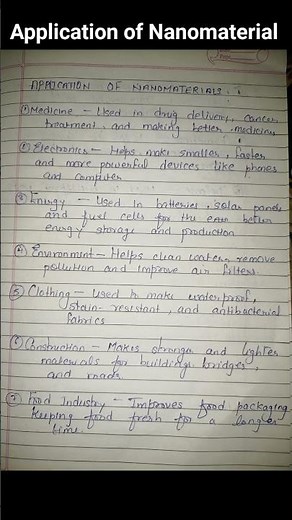 Application of Nanomaterial
APPLICATION OF NANOMATERIALS :
① Medicine – Used in drug delivery, cancer
treatment and making better medicine
② Electronics – Helps make smaller, faster
and more powerful devices like phones
and computer
③ Energy – Used in batteries, solar panels
and fuel cells for better
energy storage and production
④ Environment – Helps clean water, remove
pollution and improve air filters.
⑤ Clothing – Used to make waterproof,
stain-resistant, and antibacterial
fabrics
⑥ Construction – Makes stronger and lighter
materials for buildings, bridges,
and roads
⑦ Food Industry – Improves food packaging
keeping food fresh for a longer
time.